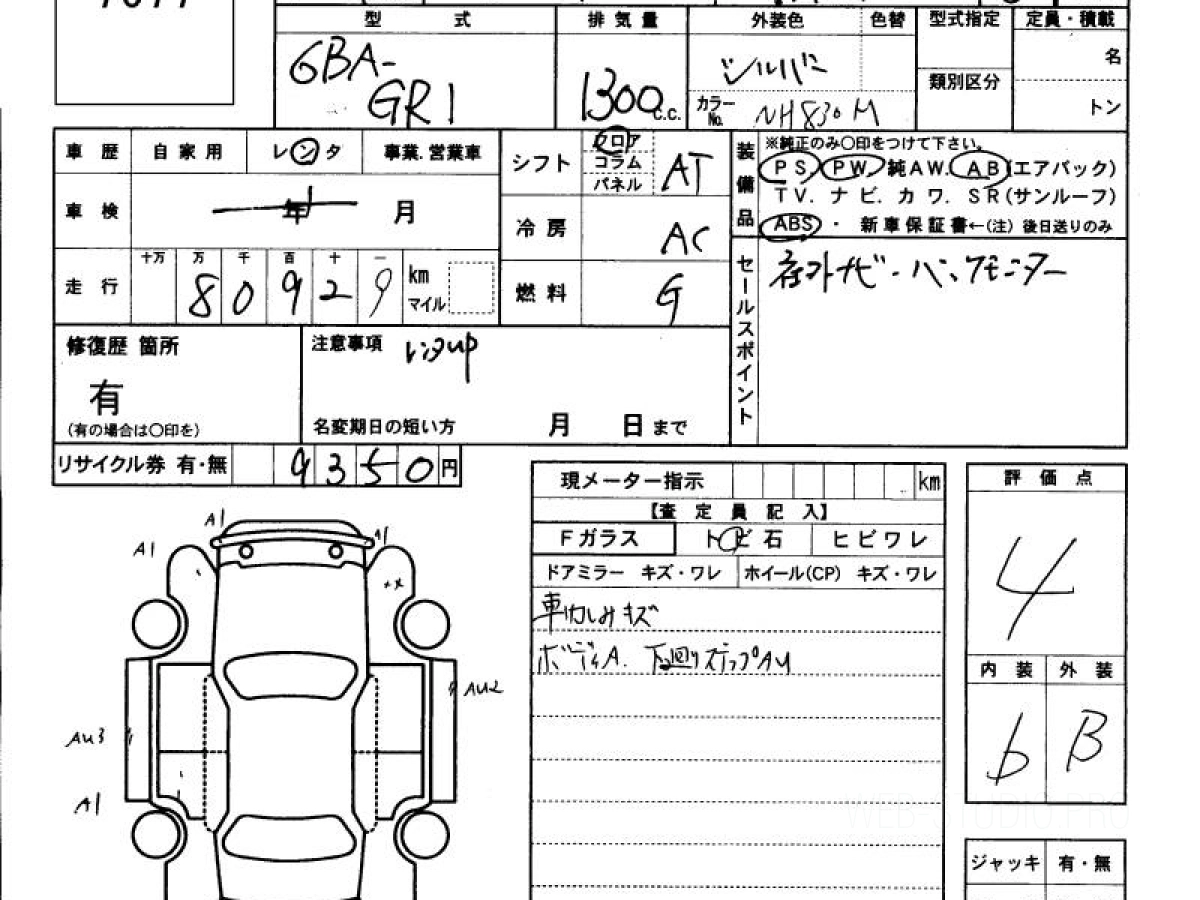 型 式 排気量 外装色 色替 型式指定 定員・積載
6BA-
GR1
1300 c.c.
シルバー
カラーNo. NH830M
名
類別区分
トン
車歴 自家用 レンタ 事業.営業車
シフト フロア コラム パネル AT
車検 年 月
冷房 AC
走行 十万 万 千 百 十 一
8 0 9 2 9 km マイル
燃料 G
装備品 ※純正のみ〇印をつけて下さい。
PS. PW. 純AW. AB(エアバック)
TV. ナビ. カワ. SR(サンルーフ)
ABS ・ 新車保証書←(注) 後日送りのみ
セールスポイント 社外ナビ・バックモニター
修復歴 箇所
有
(有の場合は〇印を)
注意事項 レンタup
名変期日の短い方 月 日 まで
リサイクル券 有・無 9350円
現メーター指示 km
【査定員記入】
Fガラス トビ石 ヒビワレ
ドアミラー キズ・ワレ ホイール(CP) キズ・ワレ
ボディA. 下廻りステップAU
評価点
4
内装 外装
b B
ジャッキ 有・無
A1
A1
A1
AU2
AU3
A1
WEB-STUDIO.PRO